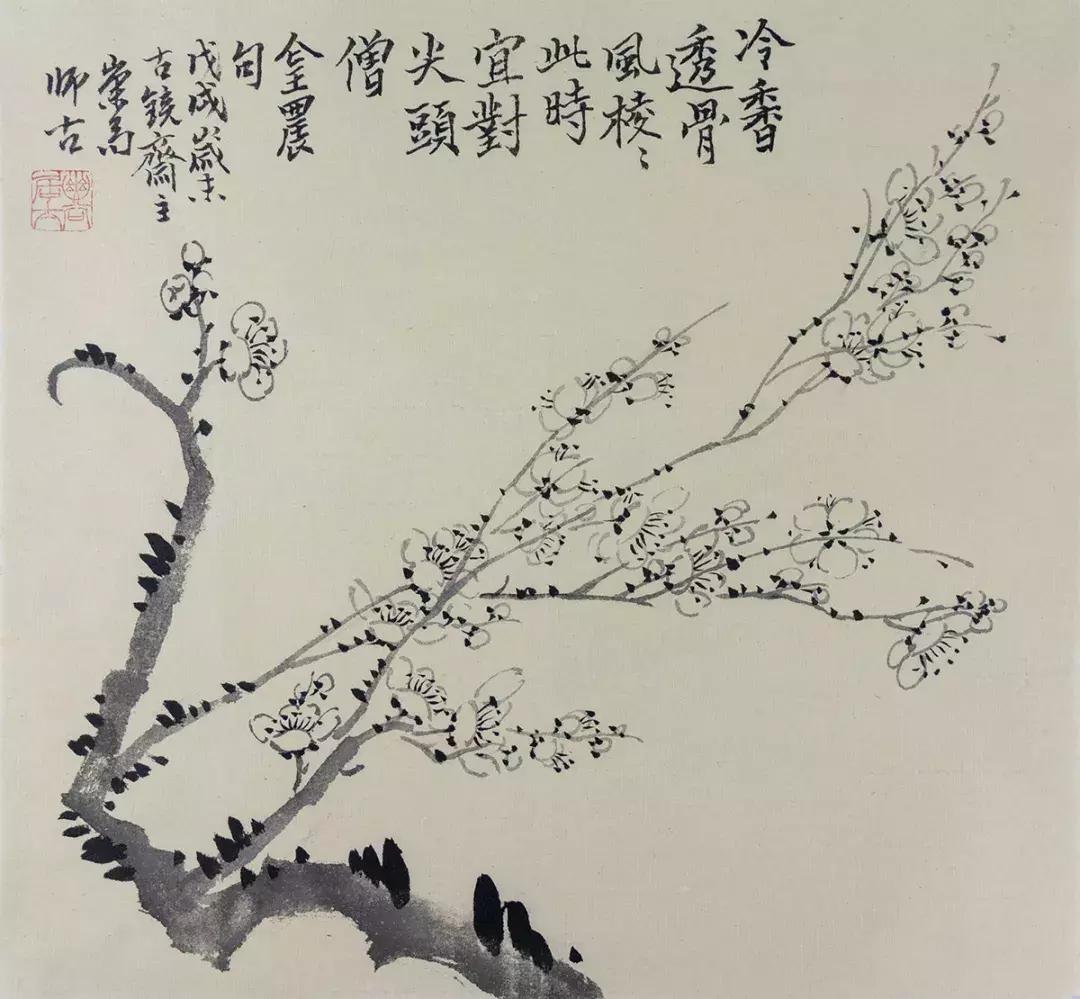 冷香
透骨
風棱〻
此時
宜對
尖頭
僧
金農
句
戊戌歲末
古鏡齋主
師古